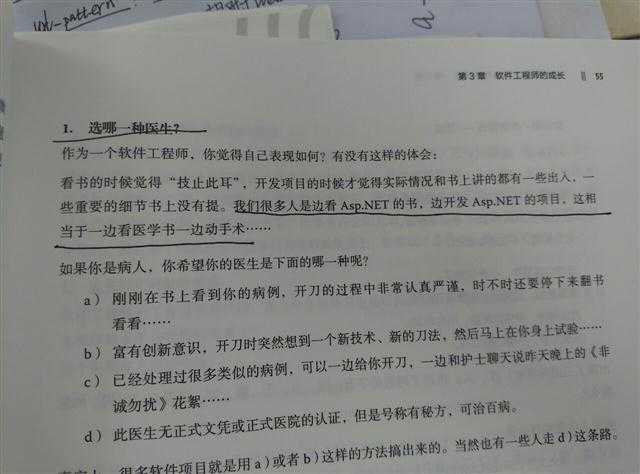 pattern
第 3 章 软件工程师的成长 55
1. 选哪一种医生？
作为一个软件工程师，你觉得自己表现如何？有没有这样的体会：
看书的时候觉得“技止此耳”，开发项目的时候才觉得实际情况和书上讲的都有一些出入，一
些重要的细节书上没有提。我们很多人是边看 Asp.NET 的书，边开发 Asp.NET 的项目，这相
当于一边看医学书一边动手术……
如果你是病人，你希望你的医生是下面的哪一种呢？
a ) 刚刚在书上看到你的病例，开刀的过程中非常认真严谨，时不时还要停下来翻书
看看……
b ) 富有创新意识，开刀时突然想到一个新技术、新的刀法，然后马上在你身上试验……
c ) 已经处理过很多类似的病例，可以一边给你开刀，一边和护士聊天说昨天晚上的《非
诚勿扰》花絮……
d ) 此医生无正式文凭或正式医院的认证，但是号称有秘方，可治百病。
很多软件项目就是用 a ) 或者 b ) 这样的方法搞出来的。当然也有一些人走 d ) 这条路。